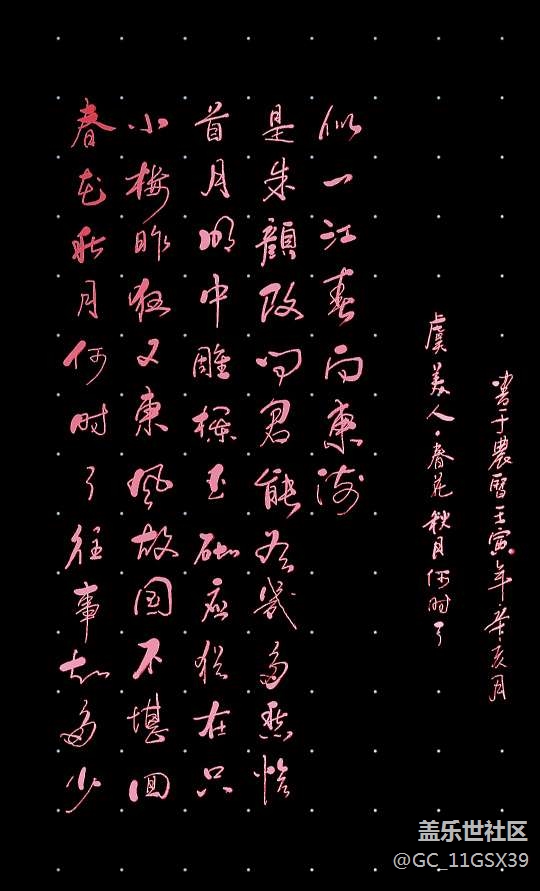 春花秋月何时了往事知多少
小楼昨夜又東风故国不堪回
首月明中雕栏玉砌应犹在只
是朱顔改问君能有幾多愁恰
似一江春向東流
虞美人·春花秋月何时了
書于農曆壬寅年辛亥月
盖乐世社区
@GC_11GSX39